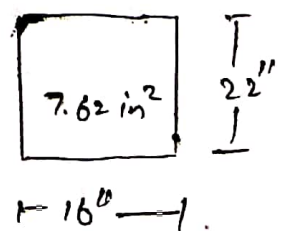 7.62 in²
22"
16"